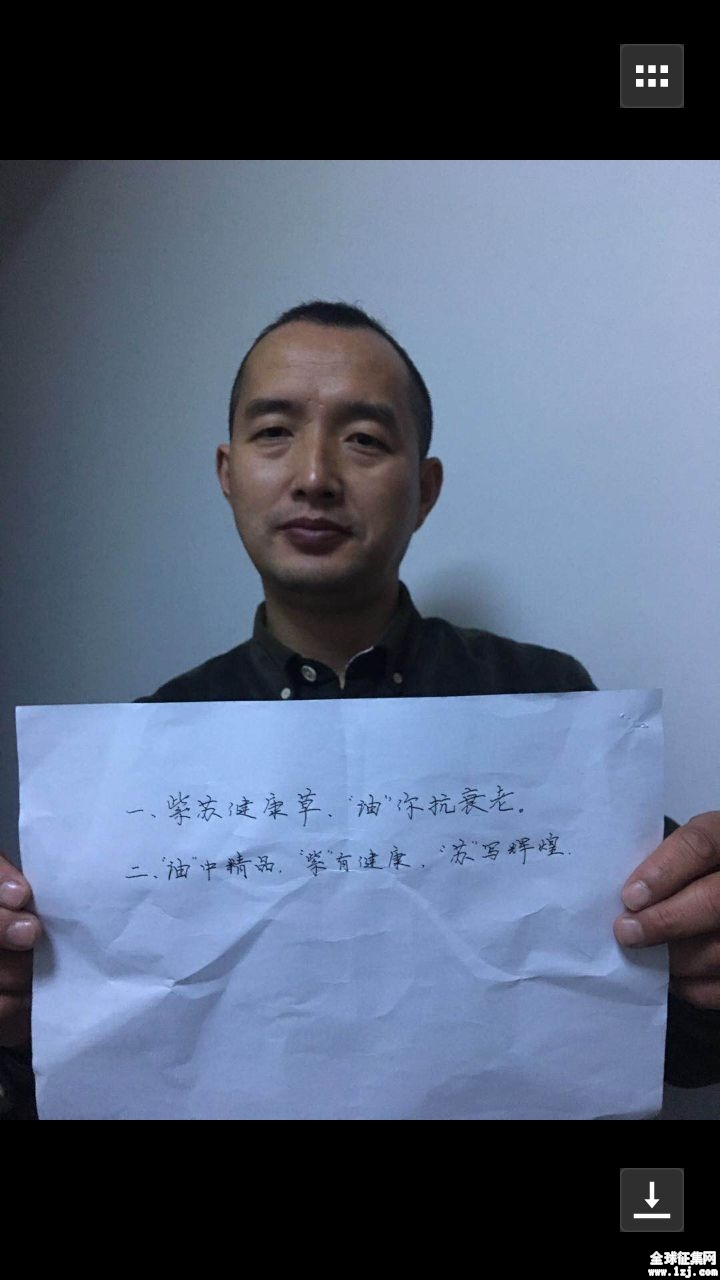 一、紫苏健康草、“油”你抗衰老。
二、“油”中精品，“紫”有健康，“苏”写辉煌.
全球征集网
www.1zj.com